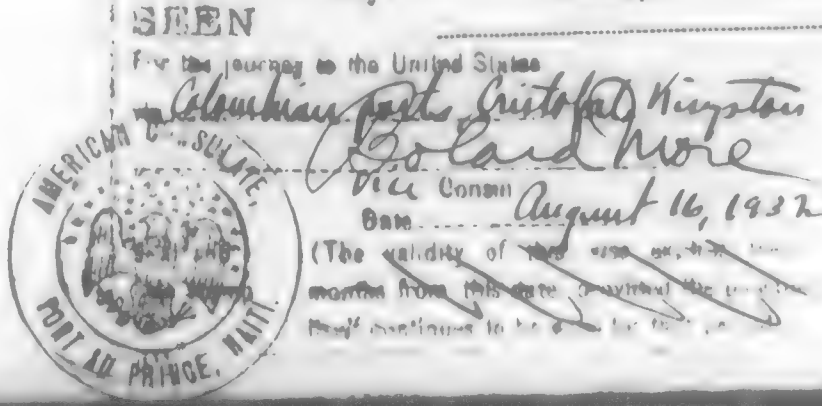 SEEN
For the journey to the United States
via Colombian ports, Cristobal, Kingston
Bolard More
Vice Consul
Date August 16, 1932
(The validity of this visa
months from this date provided the
continues to be
AMERICAN CONSULATE,
PORT AU PRINCE, HAITI.